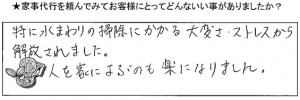 ★家事代行を頼んでみてお客様にとってどんないい事がありましたか？
特に水まわりの掃除にかかる大変さ・ストレスから
解放されました。
人を家によぶのも楽になりました。